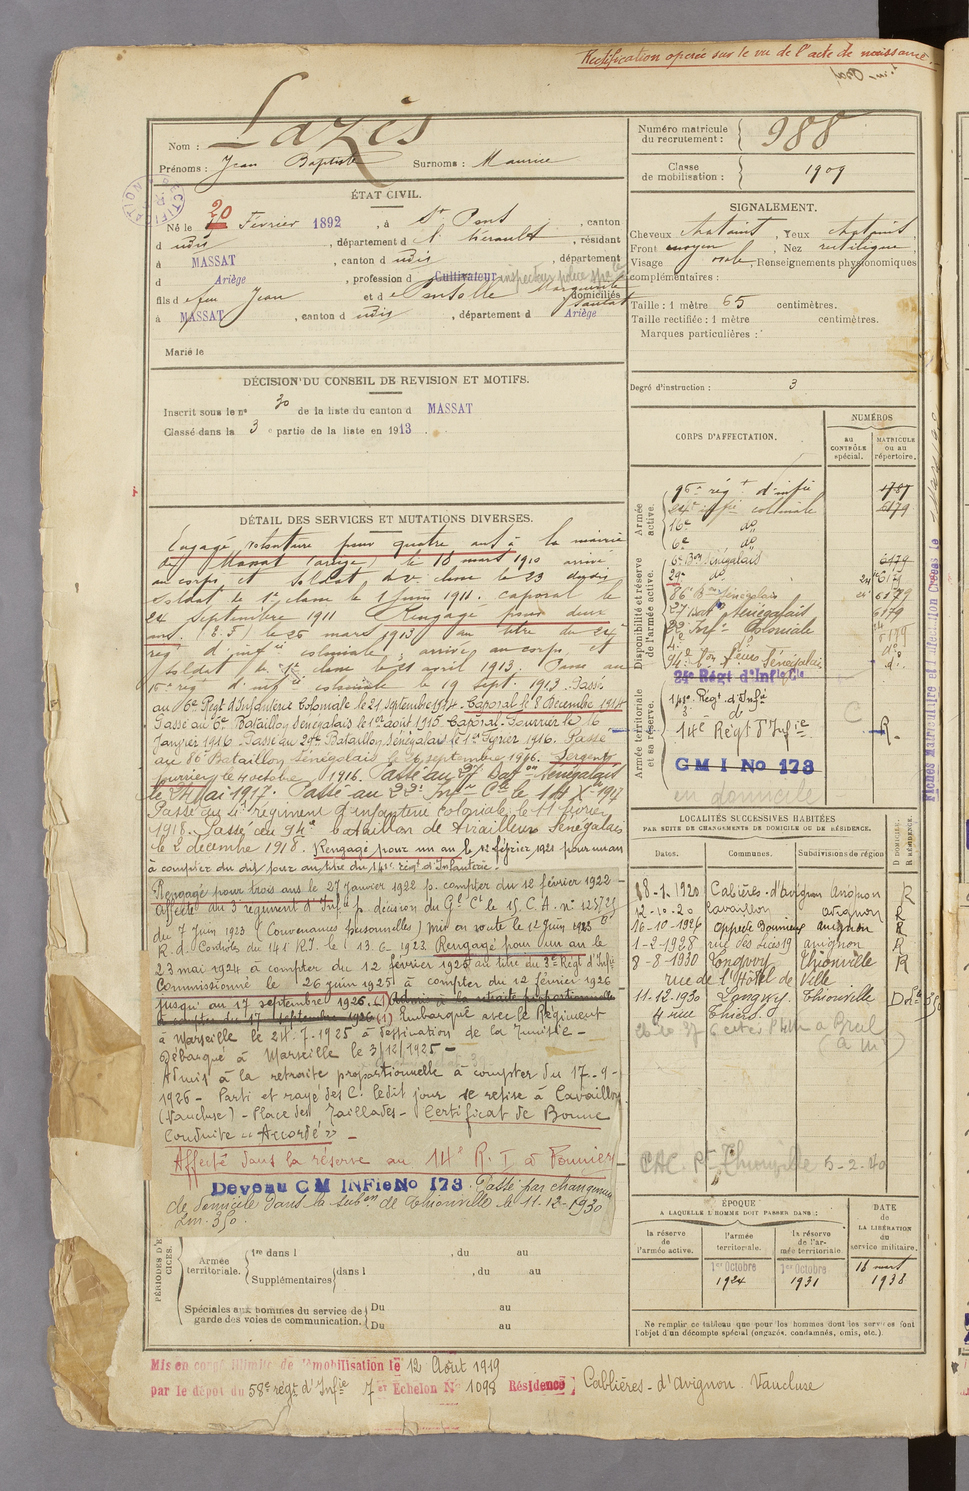 Rectification operée sur le vu de l'acte de naissance.
Nom : Lazès
Prénoms : Jean Baptiste Surnoms : Maurice
Numéro matricule du recrutement : 988
Classe de mobilisation : 1909
ÉTAT CIVIL.
Né le 20 Février 1892, à St Pont, canton
d udis, département d e l'Hérault, résidant
à MASSAT, canton d udis, département
d Ariège, profession d Cultivateur inspecteur police
fils d e feu Jean et d e Pontolle Marguerite domiciliés
à MASSAT, canton d udis, département d Ariège
Marié le
SIGNALEMENT.
Cheveux chataint, Yeux chataint,
Front moyen, Nez rectiligne
Visage ovale, Renseignements physionomiques
complémentaires :
Taille : 1 mètre 65 centimètres.
Taille rectifiée : 1 mètre centimètres.
Marques particulières :
Degré d'instruction : 3
DÉCISION DU CONSEIL DE REVISION ET MOTIFS.
Inscrit sous le no 30 de la liste du canton d MASSAT
Classé dans la 3 e partie de la liste en 1913.
CORPS D'AFFECTATION.
NUMÉROS
au CONTRÔLE spécial.
MATRICULE ou au répertoire.
Armée active.
96e régt d'infie 1787
24e infie coloniale 6179
16e do
6e do
Disponibilité et réserve de l'armée active.
6e Bon Sénégalais 6179
29e do 6179
86e Bon Sénégalais 6179
27 Baton Sénégalais 6179
22e Infie Coloniale
4e do
94e Bon Tirs Sénégalais
24e Régt d'Infie Cle
Armée territoriale et sa réserve.
141e Régt d'Infie
3e do
14e Régt d'Infie R.
GMI No 173
en domicile
DÉTAIL DES SERVICES ET MUTATIONS DIVERSES.
Engagé volontaire pour quatre ans à la mairie
de Massat (ariège) le 18 mars 1910 arrivé
au corps et soldat de 2e classe le 23 depuis
Soldat de 1e classe le 1 juin 1911. Caporal le
24 Septembre 1911 Rengagé pour deux
ans (E.S) le 25 mars 1913 au titre du 24e
rég d'infie coloniale, arrivé au corps et
Soldat de 1e classe le 21 avril 1913. Passé au
16e rég d'infie coloniale le 19 Sept. 1913. Passé
au 6e Régt d'Infanterie Coloniale le 21 septembre 1914. Caporal le 8 Décembre 1914
Passé au 6e Bataillon Sénégalais le 1er août 1915. Caporal-Fourrier le 16
Janvier 1916. Passé au 29e Bataillon Sénégalais le 1er Février 1916. Passé
au 86e Bataillon Sénégalais le 26 septembre 1916. Sergent
fourrier le 4 octobre 1916. Passé au 27 Baton Sénégalais
le 24 Mai 1917. Passé au 22e Infie Cle le 14 Xbre 1917
Passé au 4e régiment d'infanterie coloniale le 11 février
1918. Passé au 94e bataillon de Tirailleurs Sénégalais
le 2 decembre 1918. Rengagé pour un an le 12 février 1921 pour un an
à compter du dit jour au titre du 141e régt d'Infanterie.
Rengagé pour trois ans le 27 janvier 1922 p. compter du 12 février 1922
Affecté au 3e régiment d'Infie p. décision du Gal Ct le 15 C.A. no
du 7 Juin 1923 (Convenances personnelles) mis en route le 12 Juin 1923
R. d. Controles du 141e R.I. le 13.6.1923. Rengagé pour un an le
23 mai 1924 à compter du 12 février 1925 au titre du 3e Régt d'Infie
Commissionné le 26 juin 1925 à compter du 12 février 1926
jusqu'au 17 septembre 1926. (1) Admis à la retraite proportionnelle
à compter du 17 septembre 1926 (1) Embarqué avec le Régiment
à Marseille le 24.7.1925 à destination de la Tunisie -
Débarqué à Marseille le 3/12/1925 -
Admis à la retraite proportionnelle à compter du 17-9-
1926 - Parti et rayé des C. ledit jour se retire à Cavaillon
(Vaucluse) - Place des Taillades - Certificat de Bonne
Conduite "Accordé" -
Affecté dans la réserve au 14e R.I. à
Devenu CM INFie No 173. Passé par changement
de domicile dans la subon de Thionville le 11-12-1930
Lm. 350.
LOCALITÉS SUCCESSIVES HABITÉES
PAR SUITE DE CHANGEMENTS DE DOMICILE OU DE RÉSIDENCE.
Dates. Communes. Subdivisions de région D DOMICILE. R RÉSIDENCE.
18-1-1920 Cabières-d'Avignon Avignon R
12-10-20 Cavaillon avignon R
16-10-1926 Oppède avignon R
1-2-1928 rue des Lices 19 avignon R
8-8-1930 Longwy Thionville R
rue de l'Hôtel de Ville
11-12-1930 Longwy. Thionville D
4 rue Thiers.
CAC. Pt Thionville 5-2-40
ÉPOQUE
A LAQUELLE L'HOMME DOIT PASSER DANS :
la réserve de l'armée active.
l'armée territoriale. 1er Octobre 1924
la réserve de l'armée territoriale 1er Octobre 1931
DATE de LA LIBÉRATION du service militaire. 18 mars 1938
Ne remplir ce tableau que pour les hommes dont les services font
l'objet d'un décompte spécial (engagés, condamnés, omis, etc.)
PÉRIODES D'EXERCICES.
Armée territoriale. 1re dans l , du au
Supplémentaires dans l , du au
Spéciales aux hommes du service de garde des voies de communication. Du au
Du au
Mis en congé illimité de démobilisation le 12 Août 1919
par le dépôt du 58e régt d'Infie 7e Echelon No 1098 Résidence Cablières-d'avignon. Vaucluse